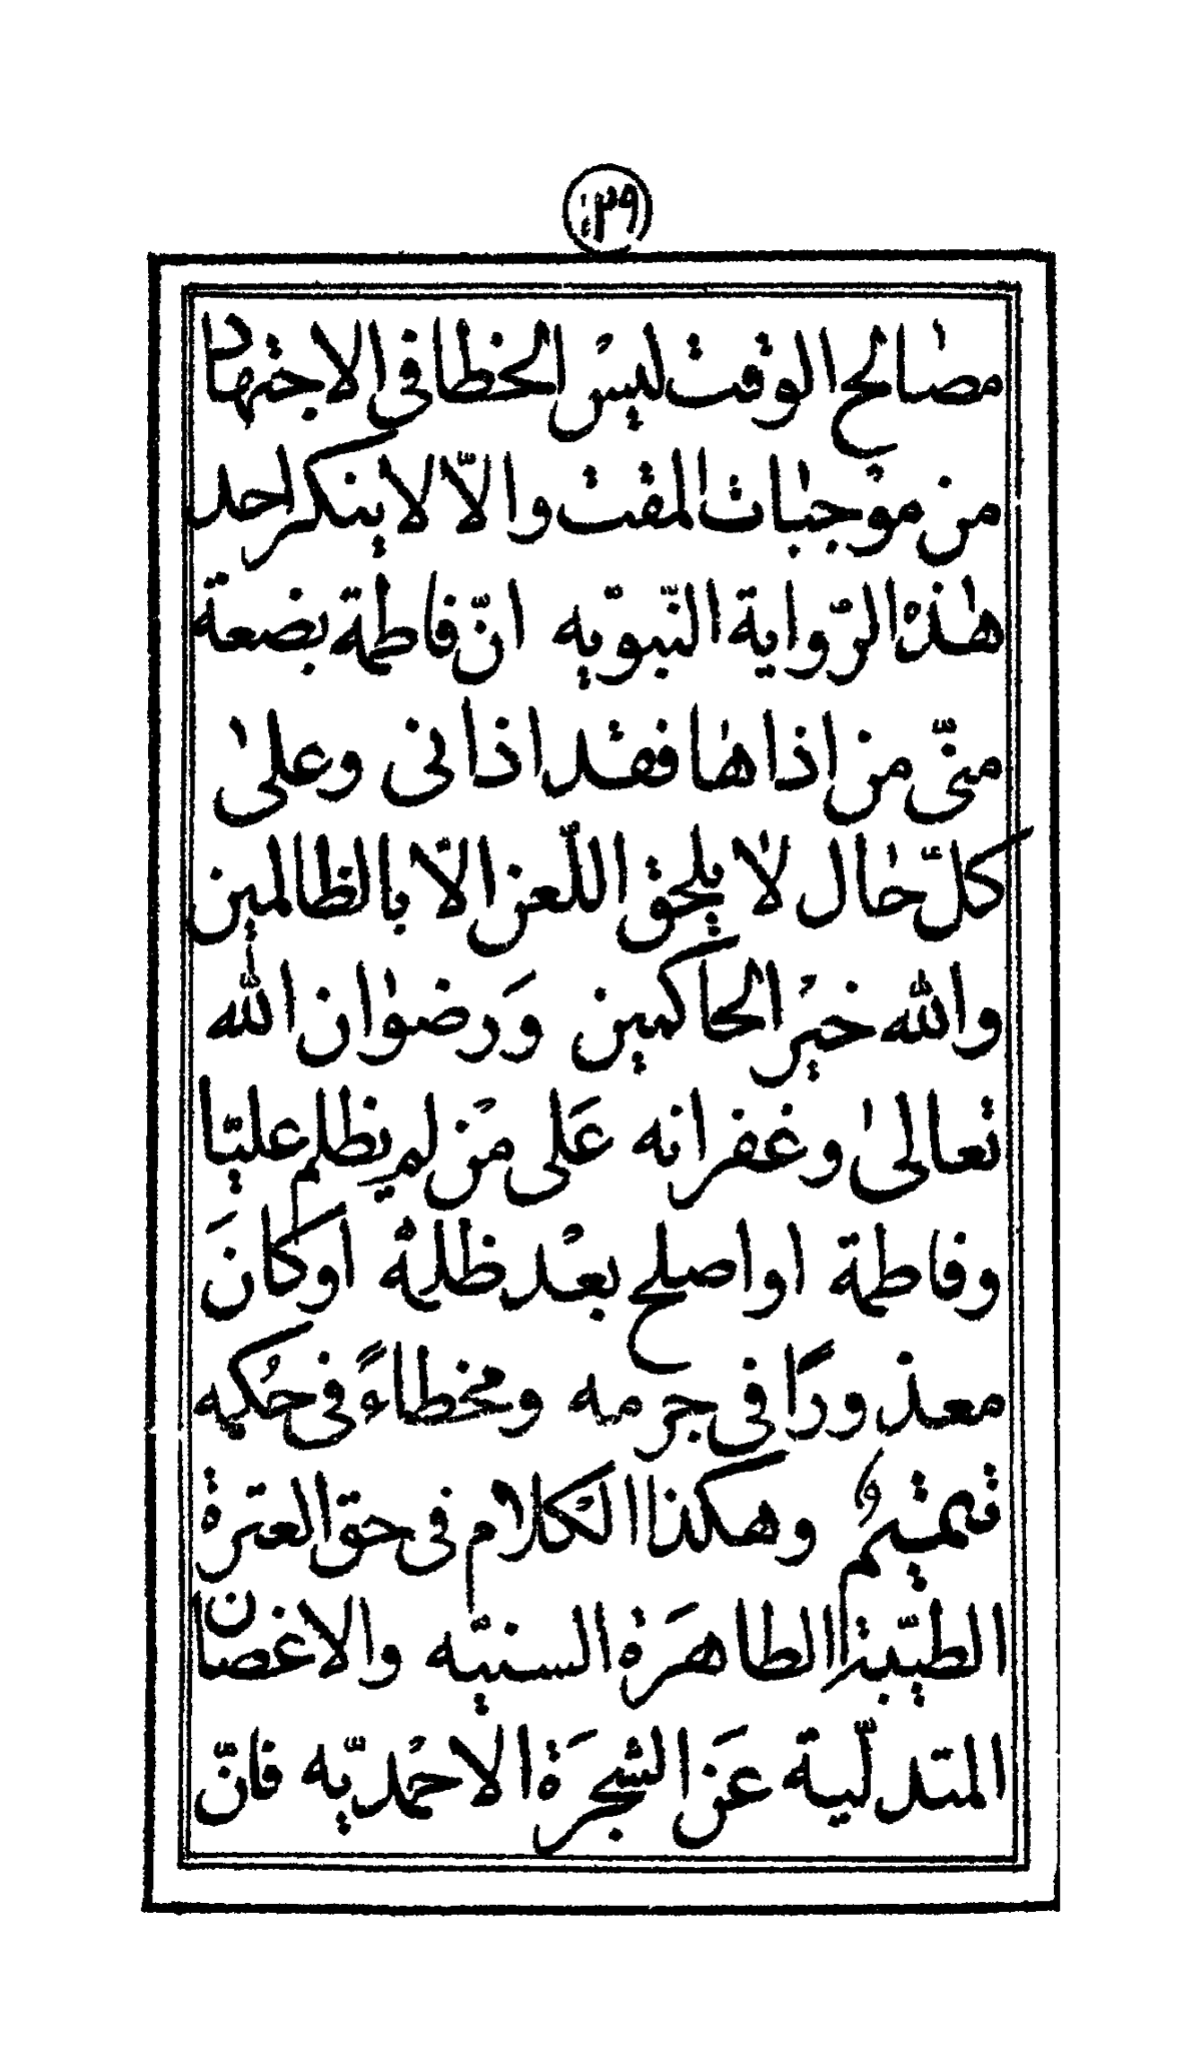 مصٰالح الوقت ليس الخطا فى الاجتهاد
من موجبٰات المقت والّا لا ينكر احد
هٰذه الرّواية النّبويّه انّ فاطمة بضعة
منّى من اذاهٰا فقد اذانى وعلىٰ
كلّ حٰال لا يلحق اللّعن الّا بالظالمين
والله خير الحاكمين وَرضوٰان الله
تعالىٰ وغفرانه عَلى مَنْ لم يظلم عليّا
وفاطمة او اصلح بعْد ظلمهْ اوكانَ
معذورًا فى جرمه ومخطاءً فى حُكمه
وهكذا الكلام فى حق العترة
الطيّبة الطاهَرة السنيّه والاغصان
المتدلّية عَن الشجَرة الاحمْديّه فانّ